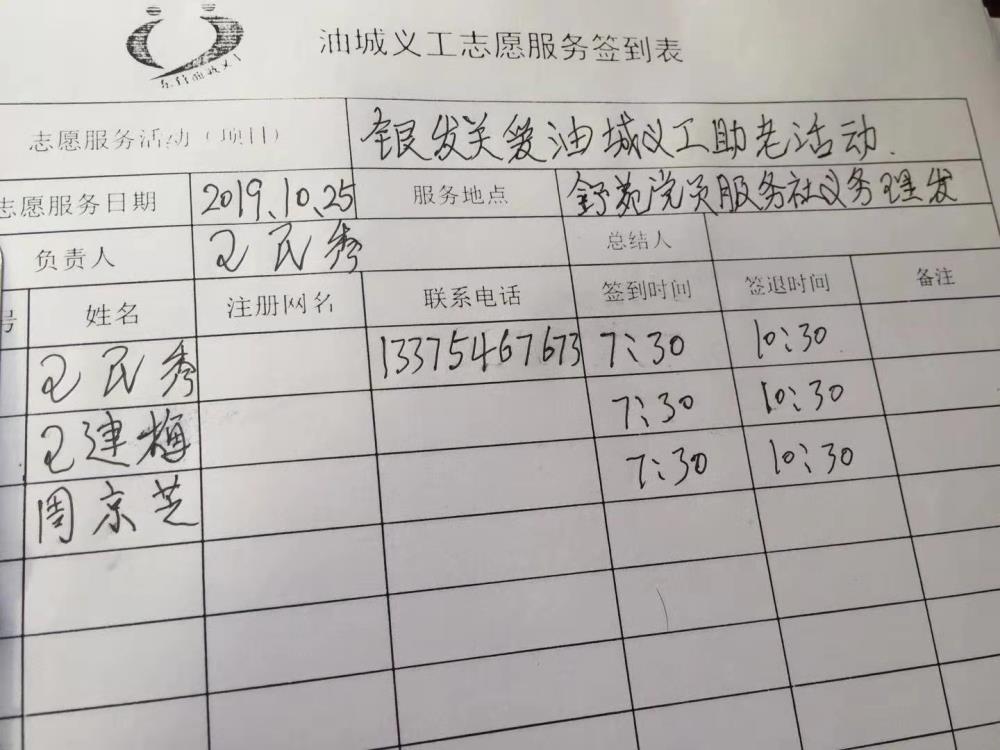 油城义工志愿服务签到表
志愿服务活动（项目） 银发关爱油城义工助老活动.
志愿服务日期 2019.10.25 服务地点 舒苑党员服务社义务理发
负责人 王民秀 总结人
号 姓名 注册网名 联系电话 签到时间 签退时间 备注
王民秀 13375467673 7:30 10:30
王建梅 7:30 10:30
周京芝 7:30 10:30